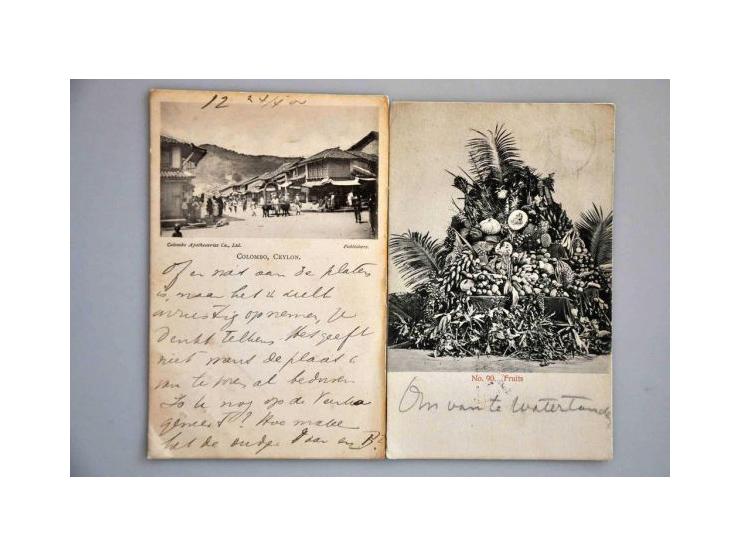 12 24/4 02
Colombo Apothecaries Co., Ltd. Publishers.
COLOMBO, CEYLON.
Of er wat aan de platen
is, maar het is
opnemen, U
denkt telkens Het geeft
niet want de plaat is
van te voren al bedorven
Is u nog op de
geweest? Hoe maken
het de oudge Daar en B.
No. 90. Fruits
Om van te watertanden